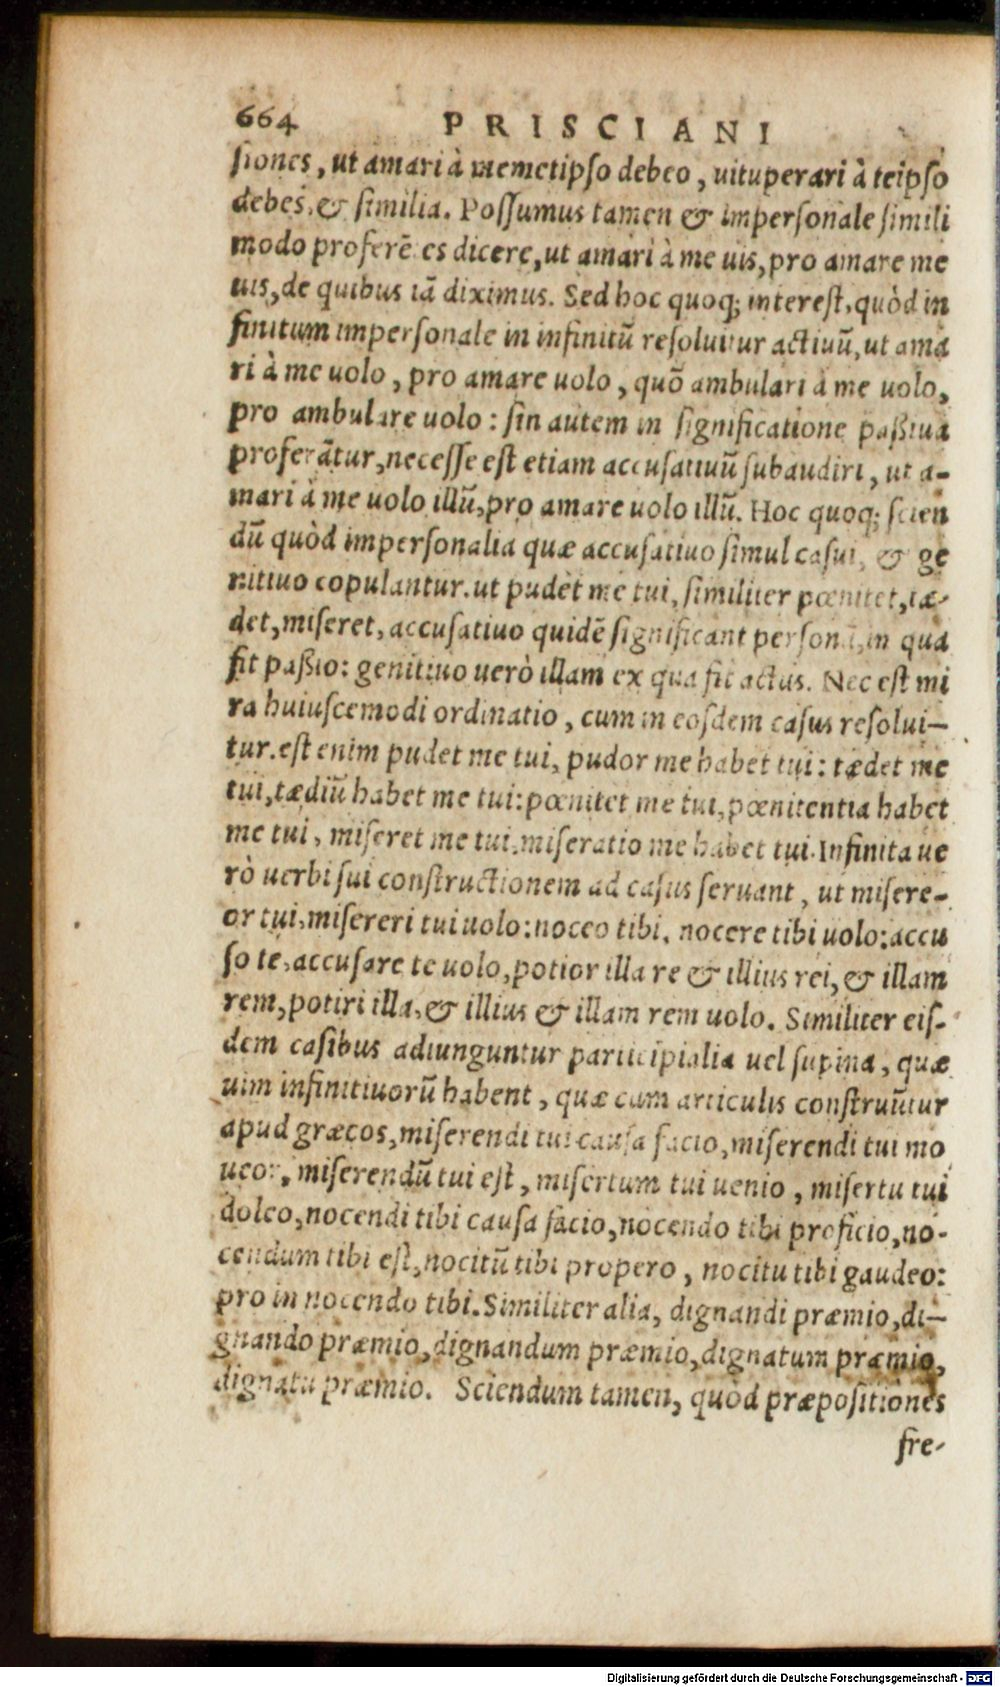 664 PRISCIANI
siones, ut amari à memetipso debeo, uituperari à teipso
debes, & similia. Possumus tamen & impersonale simili
modo proferẽtes dicere, ut amari à me uis, pro amare me
uis, de quibus iã diximus. Sed hoc quoq; interest, quòd in
finitum impersonale in infinitũ resoluitur actiuũ, ut ama
ri à me uolo, pro amare uolo, quõ ambulari à me uolo,
pro ambulare uolo: sin autem in significatione paßiua
proferãtur, necesse est etiam accusatiuũ subaudiri, ut a-
mari à me uolo illũ, pro amare uolo illũ. Hoc quoq; scien
dũ quòd impersonalia quæ accusatiuo simul casui, & ge
nitiuo copulantur. ut pudet me tui, similiter pœnitet, tæ-
det, miseret, accusatiuo quidẽ significant personã, in qua
fit paßio: genitiuo uerò illam ex qua fit actus. Nec est mi
ra huiuscemodi ordinatio, cum in eosdem casus resolui-
tur. est enim pudet me tui, pudor me habet tui: tædet me
tui, tædiũ habet me tui: pœnitet me tui, pœnitentia habet
me tui, miseret me tui, miseratio me habet tui. Infinita ue
rò uerbi sui constructionem ad casus seruant, ut misere-
or tui, misereri tui uolo: noceo tibi, nocere tibi uolo: accu
so te, accusare te uolo, potior illa re & illius rei, & illam
rem, potiri illa, & illius & illam rem uolo. Similiter eis-
dem casibus adiunguntur participialia uel supina, quæ
uim infinitiuorũ habent, quæ cum articulis construũtur
apud græcos, miserendi tui causa facio, miserendi tui mo
ueor, miserendũ tui est, misertum tui uenio, misertu tui
doleo, nocendi tibi causa facio, nocendo tibi proficio, no-
cendum tibi est, nocitũ tibi propero, nocitu tibi gaudeo:
pro in nocendo tibi. Similiter alia, dignandi præmio, di-
gnando præmio, dignandum præmio, dignatum præmio,
dignatu præmio. Sciendum tamen, quod præpositiones
fre-
Digitalisierung gefördert durch die Deutsche Forschungsgemeinschaft - DFG